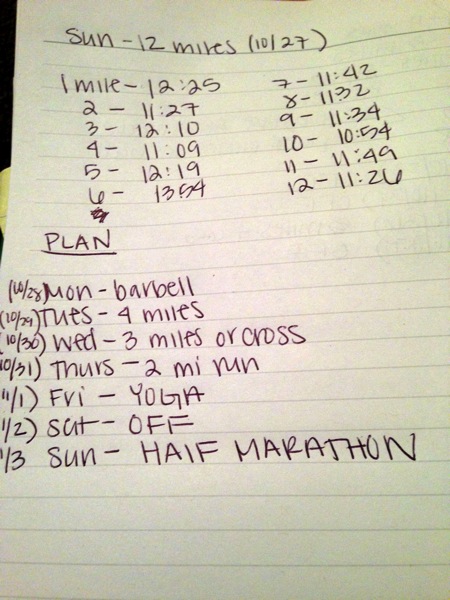 Sun - 12 miles (10/27)
1 mile - 12:25
2 - 11:27
3 - 12:10
4 - 11:09
5 - 12:19
6 - 13:54
7 - 11:42
8 - 11:32
9 - 11:34
10 - 10:54
11 - 11:49
12 - 11:26
PLAN
(10/28) Mon - barbell
(10/29) Tues - 4 miles
(10/30) Wed - 3 miles or cross
10/31) Thurs - 2 mi run
11/1) Fri - YOGA
1/2) Sat - OFF
1/3 Sun - HALF MARATHON